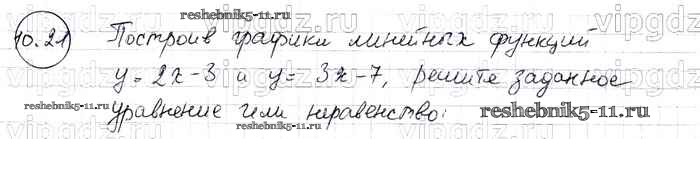 reshebnik5-11.ru
10.21 Построив графики линейных функций
y = 2x - 3 и y = 3x - 7, решите заданное
уравнение или неравенство:
reshebnik5-11.ru
reshebnik5-11.ru
reshebnik5-11.ru
vipgdz.ru